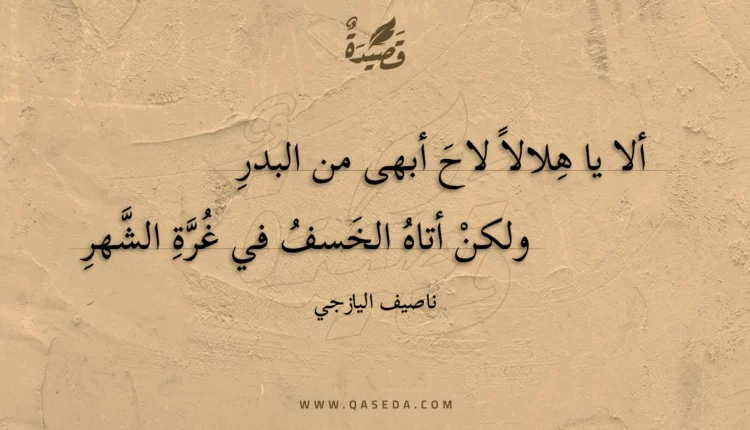 قَصِيْدَةٌ
ألا يا هِلالاً لاحَ أبهى من البدرِ
ولكنْ أتاهُ الخَسفُ في غُرَّةِ الشَّهرِ
ناصيف اليازجي
WWW.QASEDA.COM